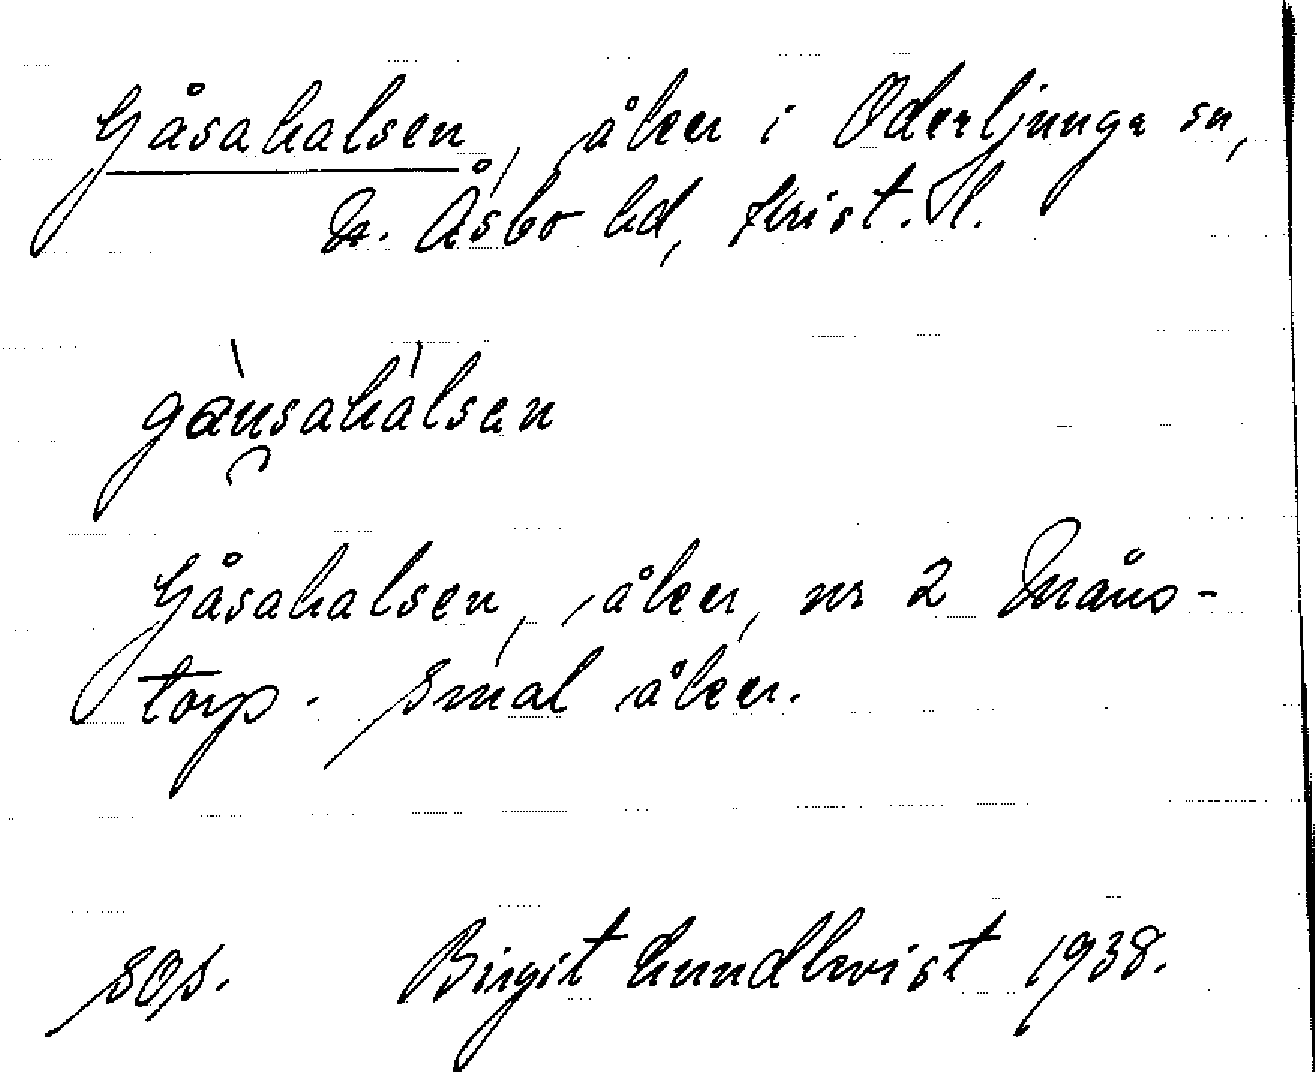 Gåsahalsen, åker i Oderljunga sn,
N. Åsbo hd, Krist. l.
gæ̀nsahàlsen
Gåsahalsen, åker, nr 2 Måns-
torp. Smal åker.
SOS. Birgit Lundkvist 1938.